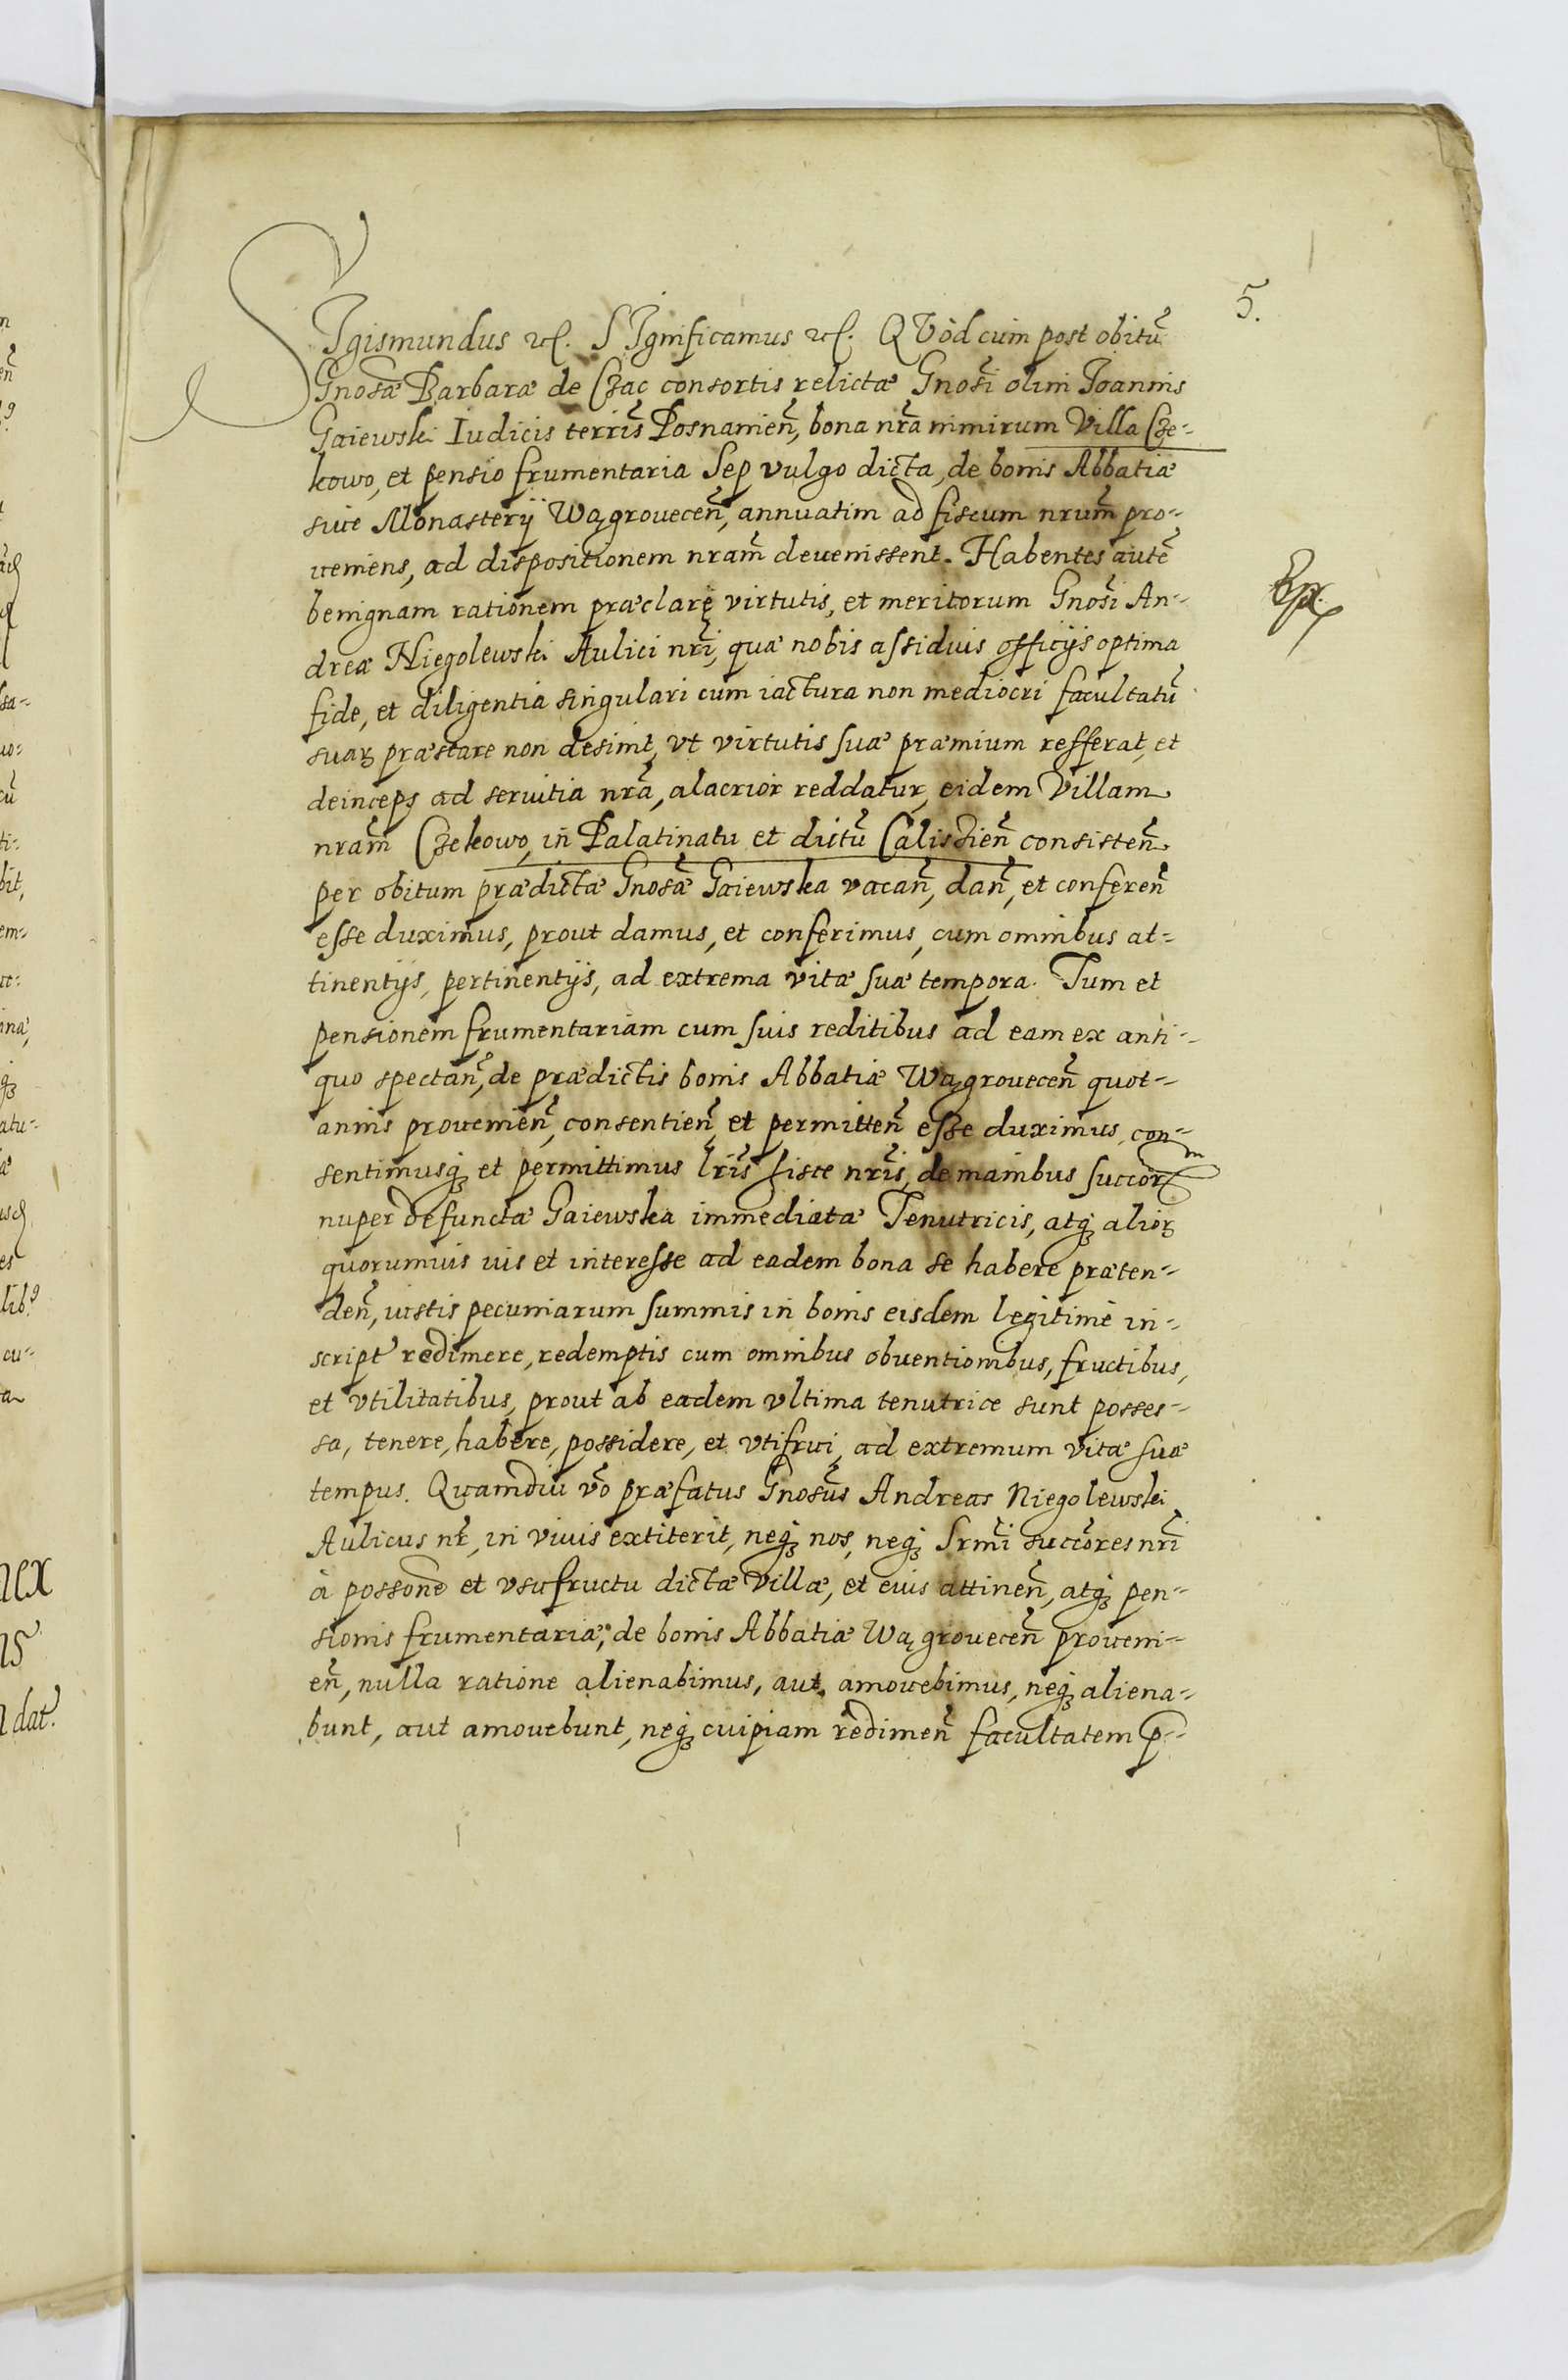 5.
SIgismundus etc. SIgnificamus etc. QVòd cùm post obitũ
Gnosæ Barbaræ de Czac consortis relictæ Gnosi olim Joannis
Gaiewski Iudicis terris Posnanien̄, bona nr̃a nimirum Villa Cze-
kowo, et pensio frumentaria Sep vulgo dicta, de bonis Abbatiæ
siue Monasterij Wągrouecen̄, annuatim ad fiscum nrum̃ pro-
ueniens, ad dispositionem nram̃ deuenissent. Habentes autẽ
benignam rationem præclarę virtutis, et meritorum Gnosi An-
dreæ Niegolewski Aulici nri, quæ nobis assiduis officijs optima
fide, et diligentia singulari cum iactura non mediocri facultatũ
suaꝝ præstare non desinit, vt virtutis suæ præmium refferat, et
deinceps ad seruitia nr̃a, alacrior reddatur, eidem Villam
nram̃ Czekowo, in Palatinatu et dictũ Calissien̄ consisten̄
per obitum prædictæ Gnosæ Gaiewska vacan̄, dan̄, et conferen̄
esse duximus, prout damus, et conferimus, cum omnibus at-
tinentijs, pertinentijs, ad extrema vitæ suæ tempora. Tum et
pensionem frumentariam cum suis reditibus ad eam ex anti-
quo spectan̄, de prædictis bonis Abbatiæ Wągrouecen̄ quot-
annis prouenien̄, consentien̄ et permitten̄ esse duximus, con-
sentimusqꝫ et permittimus lris̃ hisce nris̃, de manibus succor̃
nuper defunctæ Gaiewska immediatæ Tenutricis, atqꝫ alioꝝ
quorumuis ius et interesse ad eadem bona se habere præten-
den̄, iustis pecuniarum summis in bonis eisdem legitimè in-
script̃ redimere, redemptis cum omnibus obuentionibus, fructibus,
et vtilitatibus, prout ab eadem vltima tenutrice sunt posses-
sa, tenere, habere, possidere, et vtifrui, ad extremum vitæ suæ
tempus. Quamdiu võ præfatus Gnosus Andreas Niegolewski
Aulicus nr̃, in viuis extiterit, neqꝫ nos, neqꝫ Srmi succores nri
à possone et vsufructu dictæ Villæ, et eius attinen̄, atqꝫ pen-
sionis frumentariæ, de bonis Abbatiæ Wągrouecen̄ proueni-
en̄, nulla ratione alienabimus, aut amouebimus, neqꝫ aliena-
bunt, aut amouebunt, neqꝫ cuipiam redimen̄ facultatem p-